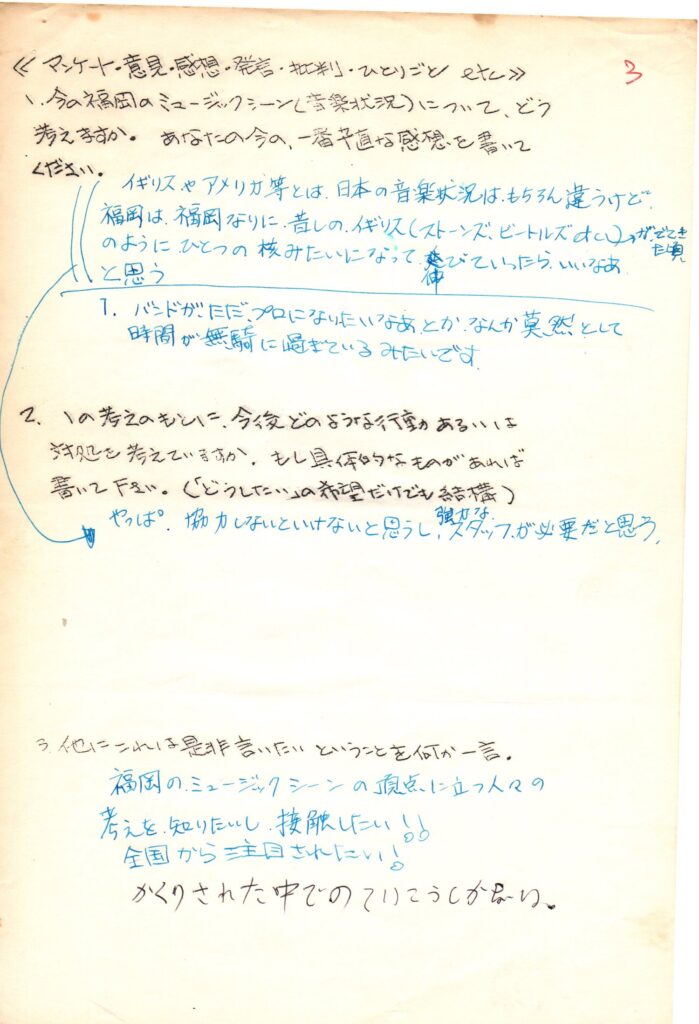 《 アンケート・意見・感想・発言・批判・ひとりごと etc 》
3
1. 今の福岡のミュージックシーン(音楽状況)について、どう
考えますか。 あなたの今の、一番卆直な感想を書いて
ください。
イギリスやアメリカ等とは、日本の音楽状況は、もちろん違うけど、
福岡は、福岡なりに、昔しの、イギリス(ストーンズ、ビートルズetc)が、でてきた頃
のように、ひとつの核みたいになって、伸びていったら、いいなあ
と思う
1. バンドが、ただ、プロになりたいなあとか、なんか莫然として
時間が無騎に過ぎているみたいです。
2. 1の考えのもとに、今後どのような行動あるいは
対処を考えていますか。もし具体的なものがあれば
書いて下さい。(「どうしたい」の希望だけでも結構)
やっぱ。協力しないといけないと思うし、強力な、スタッフが必要だと思う。
3. 他にこれは是非言いたいということを何か一言。
福岡の、ミュージックシーンの頂点に立つ人々の
考えを、知りたいし、接触したい!!
全国から注目されたい!
かくりされた中でのていこうしかない。